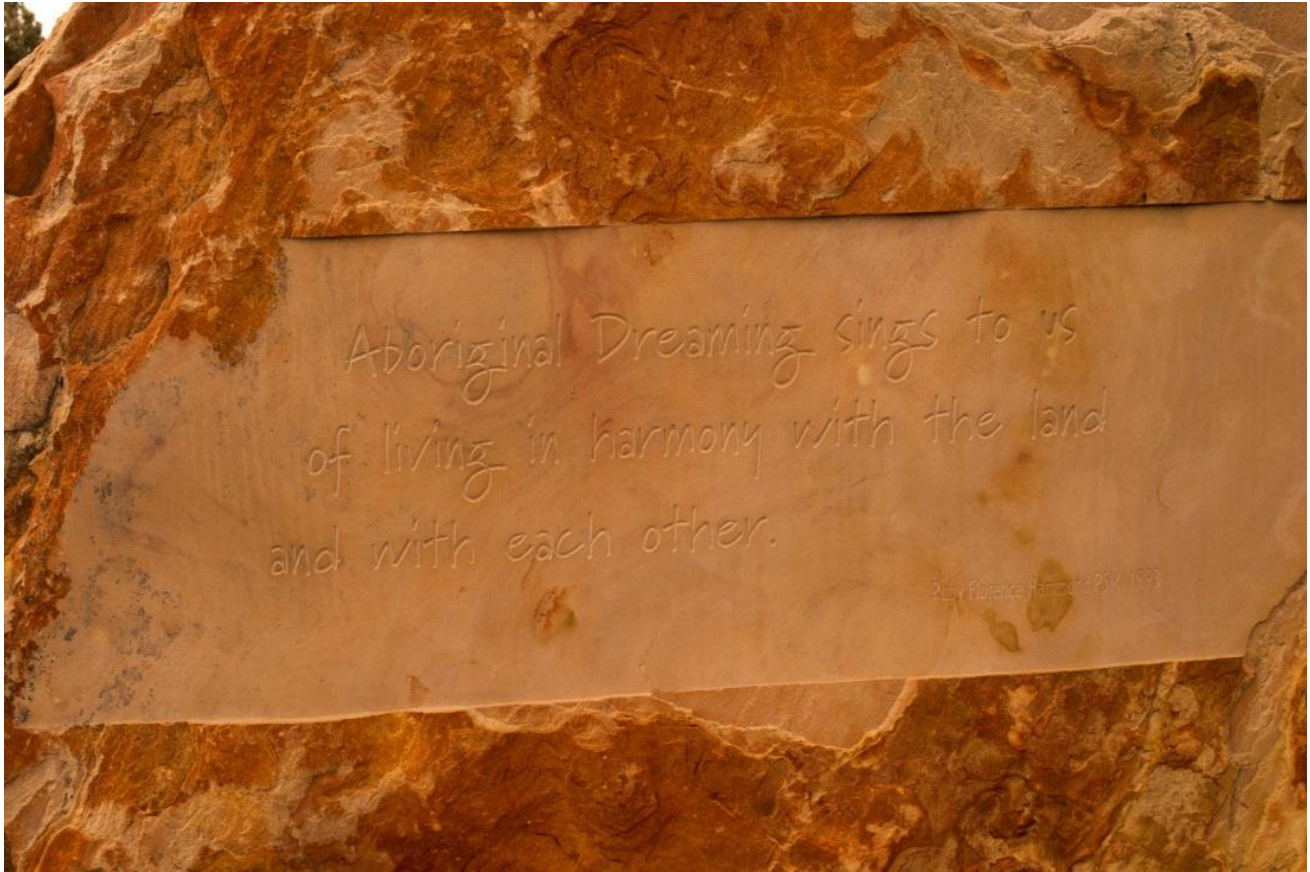 Aboriginal Dreaming sings to us
of living in harmony with the land
and with each other.
Ruby Florence Hammond PSM, 1993